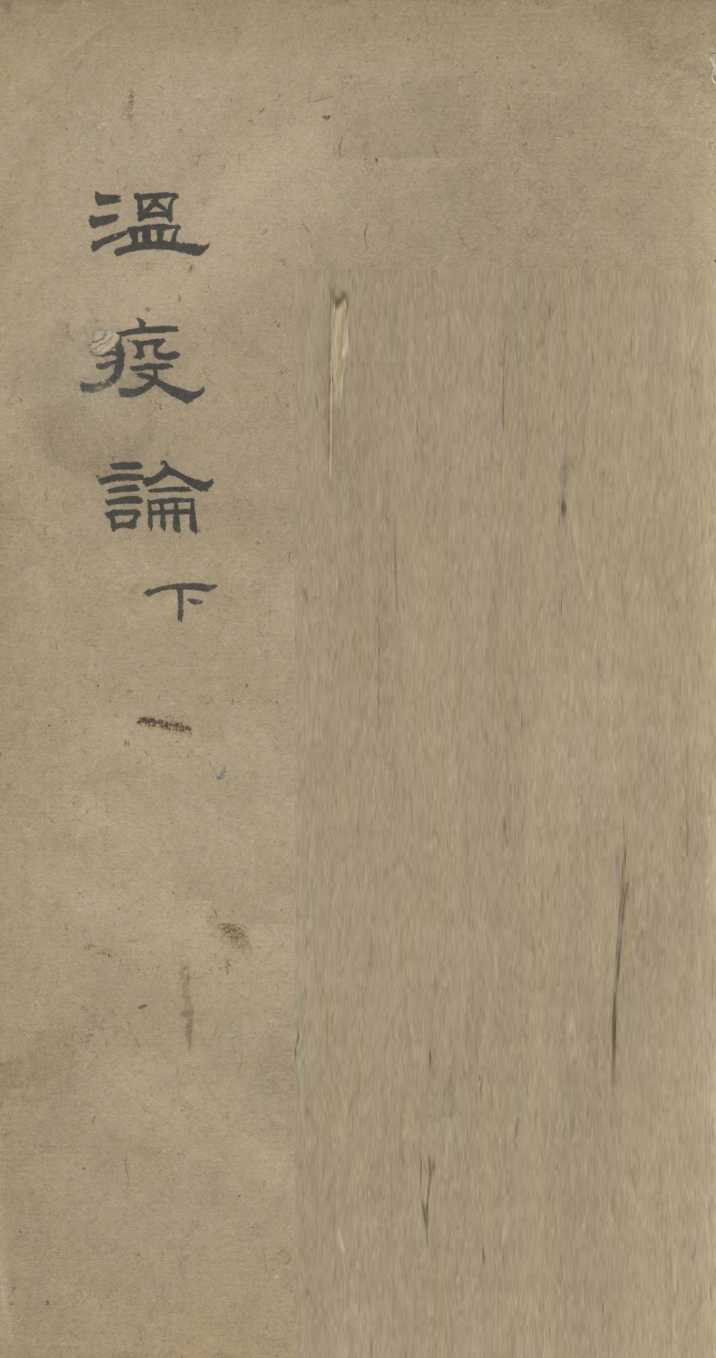 溫疫論下